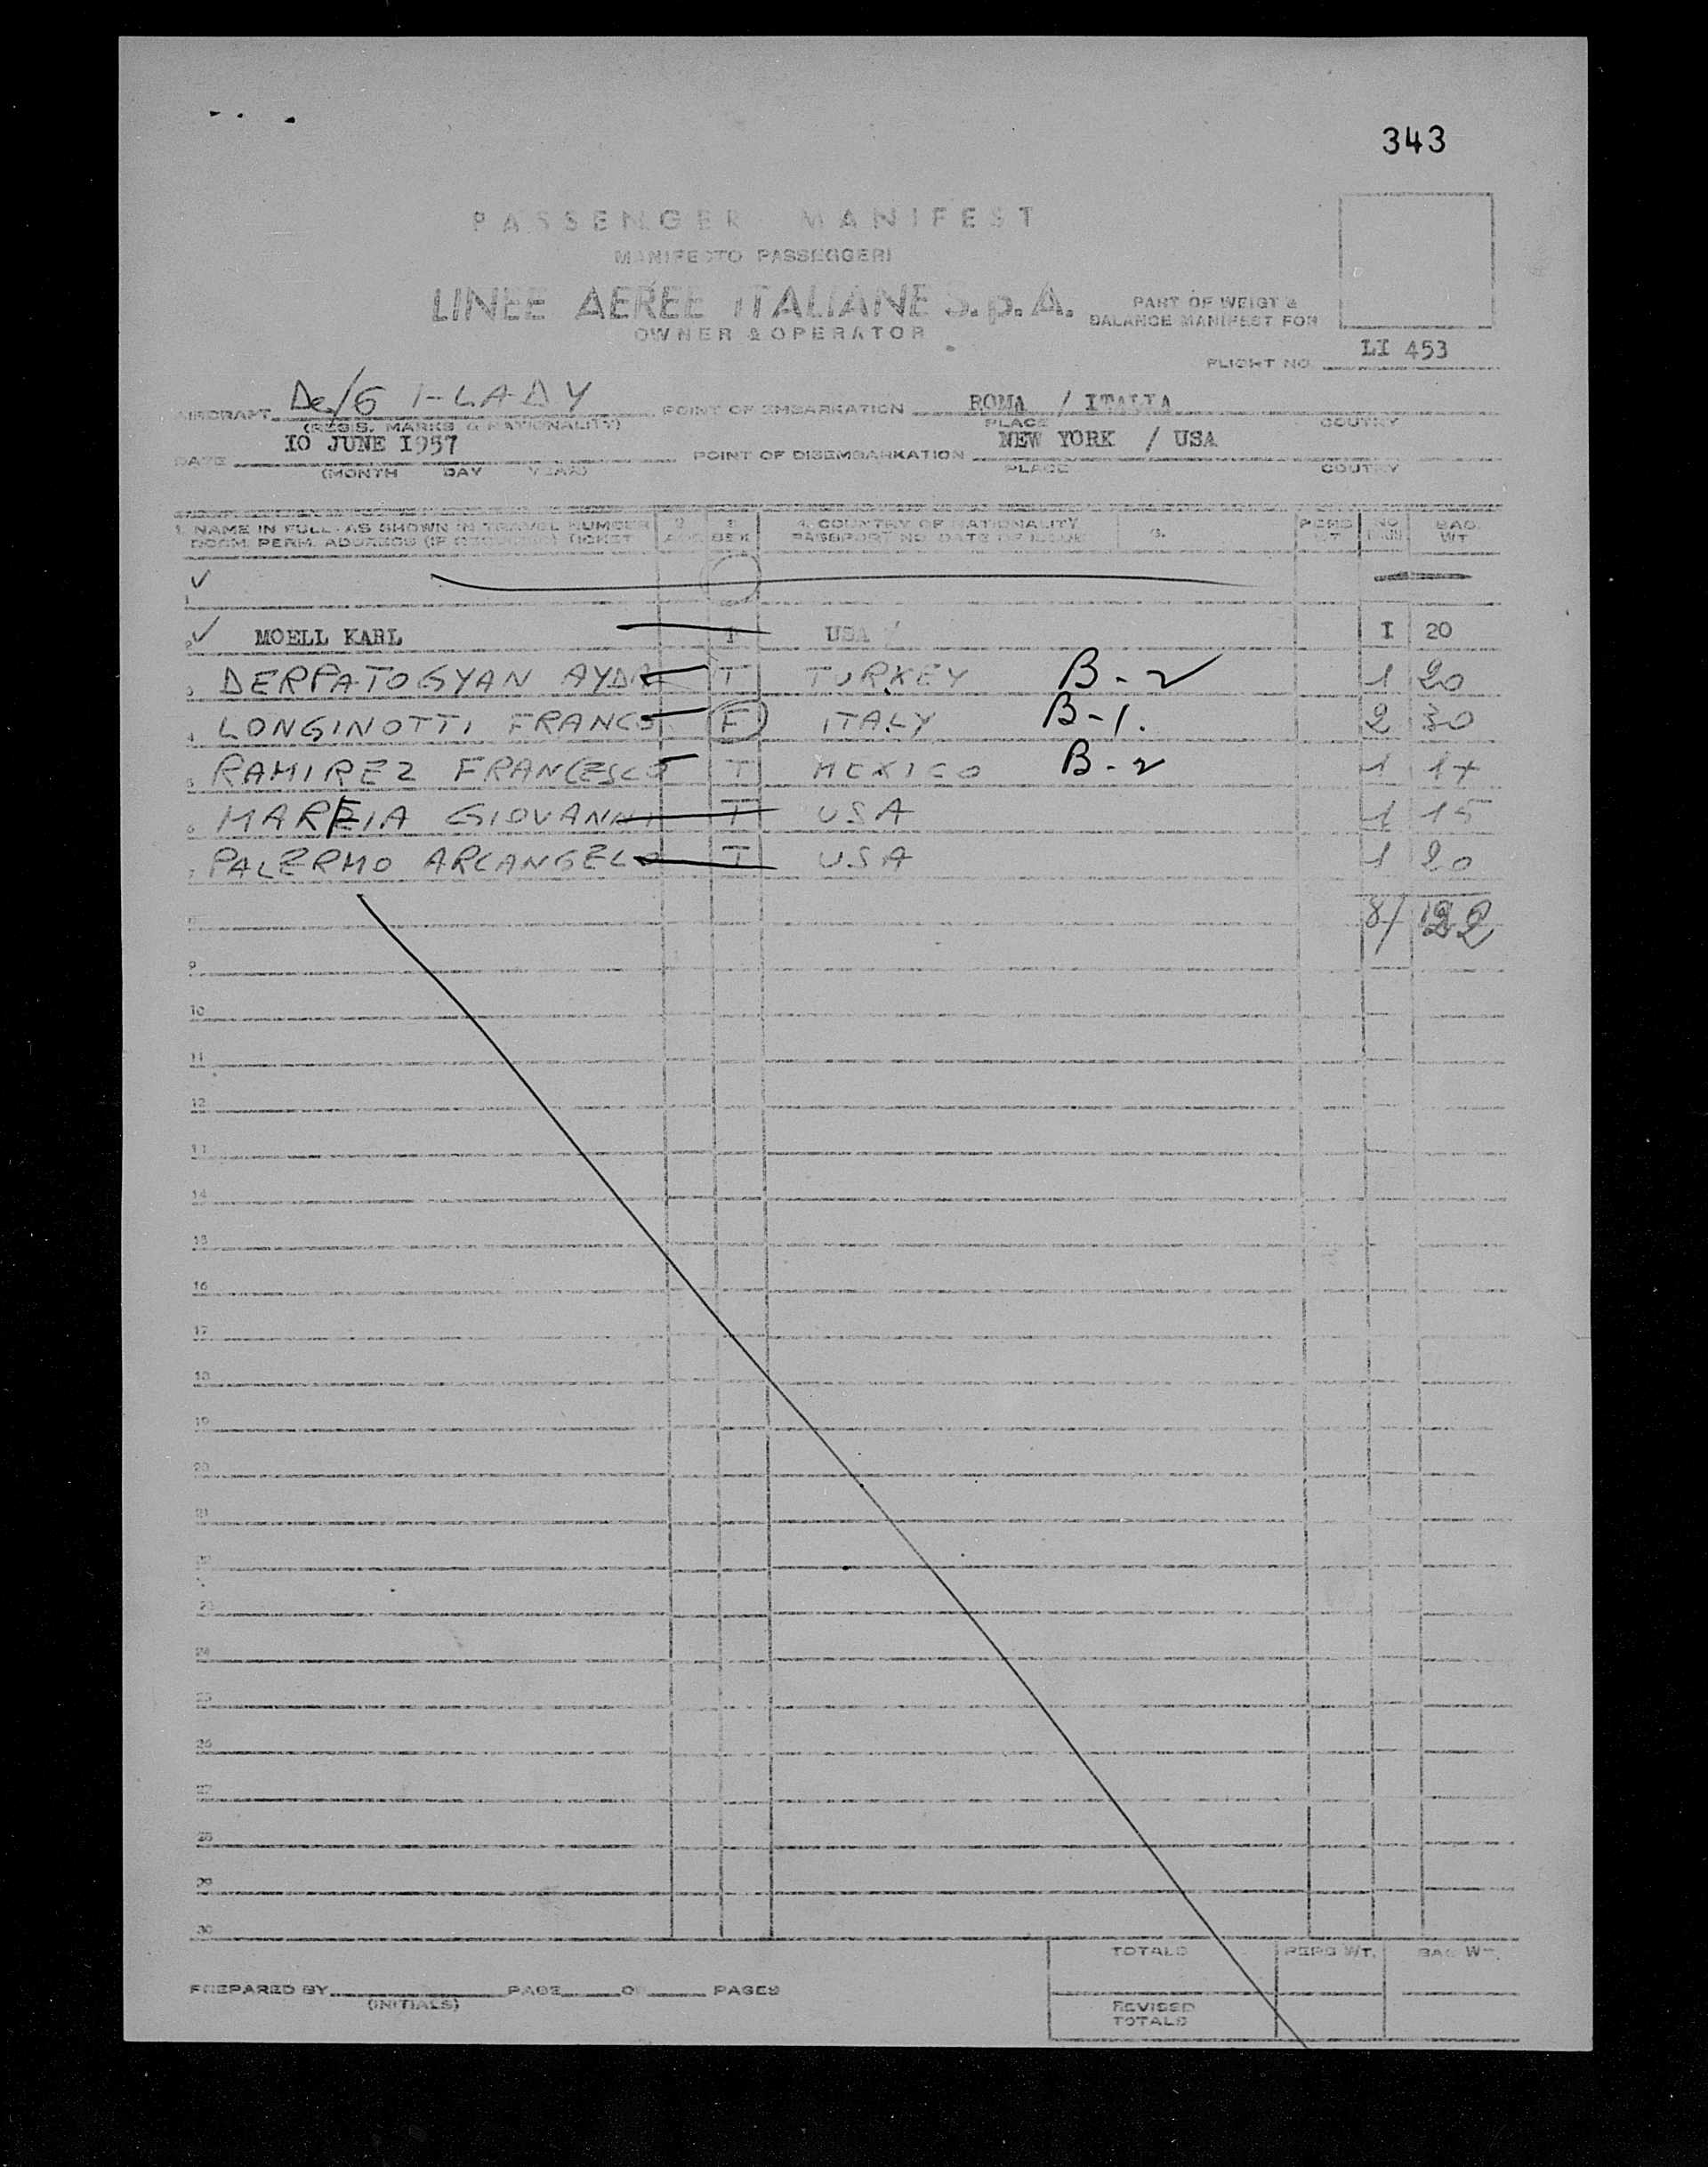 343
PASSENGER MANIFEST
MANIFESTO PASSEGGERI
LINEE AEREE ITALIANE S.p.A.
OWNER & OPERATOR
PART OF WEIGT &
BALANCE MANIFEST FOR
FLIGHT NO. LI 453
AIRCRAFT I-LADY POINT OF EMBARKATION ROMA / ITALIA
(REGIS. MARKS & NATIONALITY) PLACE COUTRY
DATE 10 JUNE 1957 POINT OF DISEMBARKATION NEW YORK / USA
(MONTH DAY YEAR) PLACE COUTRY
1. NAME IN FULL - AS SHOWN IN TRAVEL NUMBER 2. 3. 4. COUNTRY OF NATIONALITY 5. PERS NO. BAG.
DOCM. PERM. ADDRESS (IF REQUIRED) TICKET AGE SEX PASSPORT NO. DATE OF ISSUE WT WT
1
2 MOELL KARL USA I 20
3 DERPATOGYAN AYDA T TURKEY B-2 1 20
4 LONGINOTTI FRANCO F ITALY B-1. 2 30
5 RAMIREZ FRANCESCO T MEXICO B-2 1 17
6 GIOVANNI T USA 1 15
7 PALERMO ARCANGELO T USA 1 20
8/ 122
9
10
11
12
13
14
15
16
17
18
19
20
21
22
23
24
25
26
27
28
29
30
TOTALS PERS WT. BAG WT.
PREPARED BY PAGE OF PAGES
(INITIALS)
REVISED
TOTALS